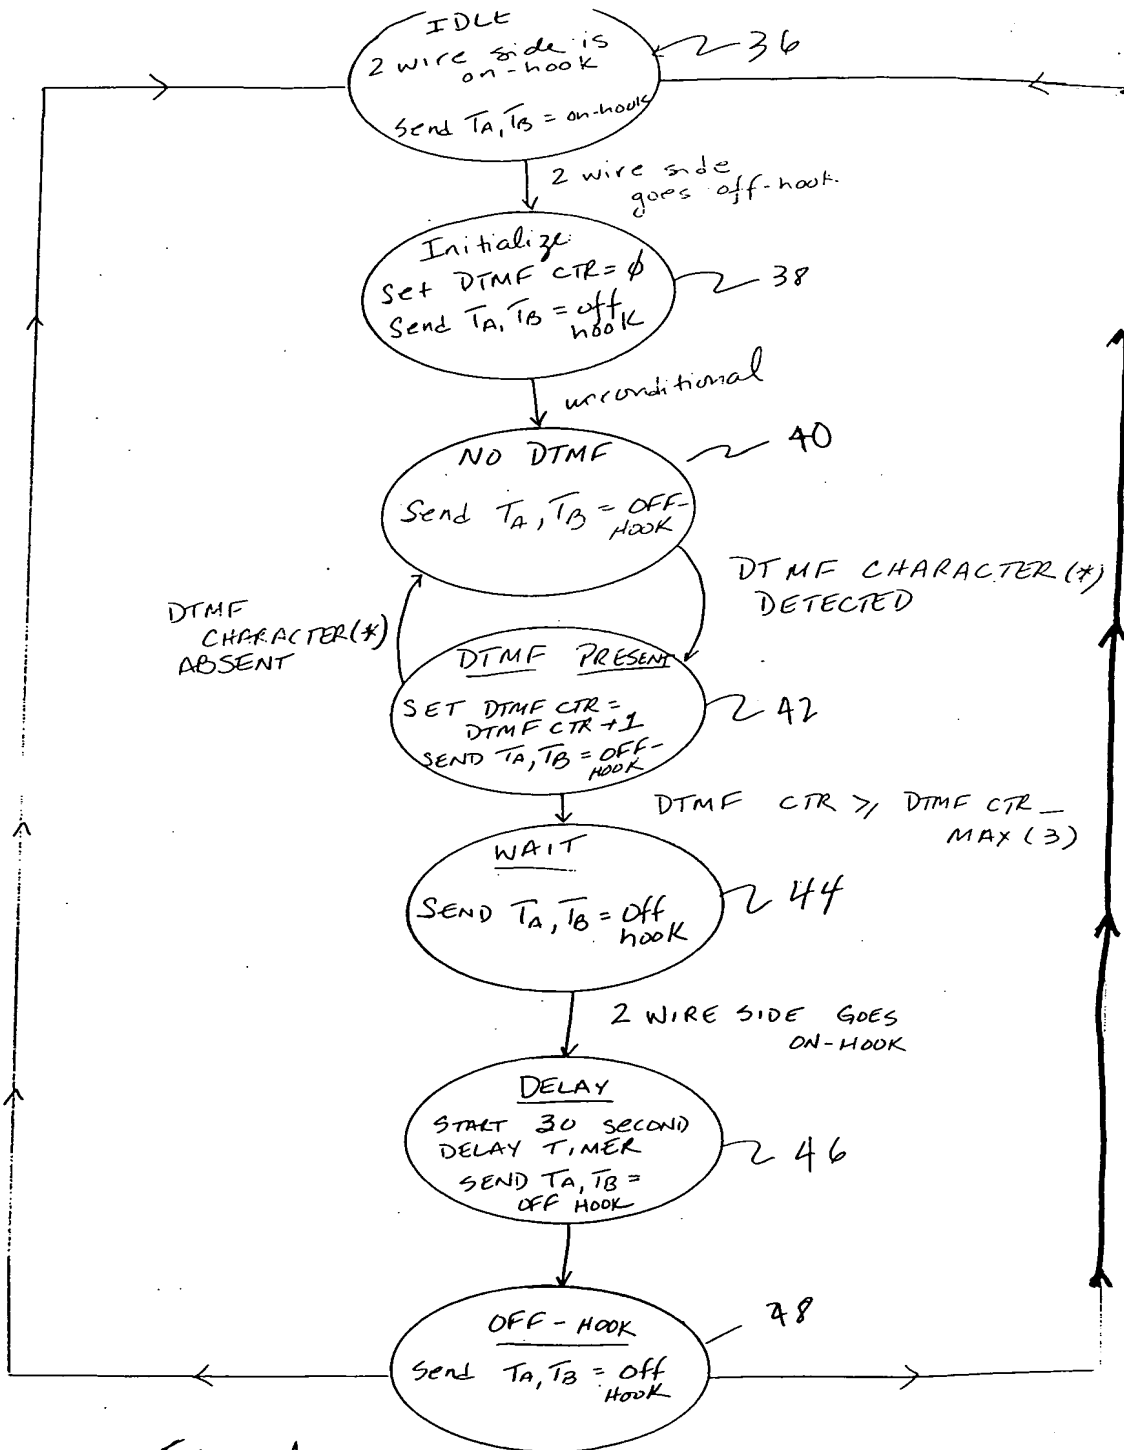 IDLE
2 wire side is
on-hook
Send TA, TB = on-hook
36
2 wire side
goes off-hook.
Initialize
Set DTMF CTR = ϕ
Send TA, TB = off
hook
38
unconditional
NO DTMF
Send TA, TB = OFF-
HOOK
40
DTMF CHARACTER (*)
DETECTED
DTMF
CHARACTER (*)
ABSENT
DTMF PRESENT
SET DTMF CTR =
DTMF CTR + 1
SEND TA, TB = OFF-
HOOK
42
DTMF CTR ⩾ DTMF CTR_
MAX (3)
WAIT
SEND TA, TB = Off
hook
44
2 WIRE SIDE GOES
ON-HOOK
DELAY
START 30 SECOND
DELAY TIMER
SEND TA, TB =
OFF HOOK
46
OFF - HOOK
Send TA, TB = Off
HOOK
48